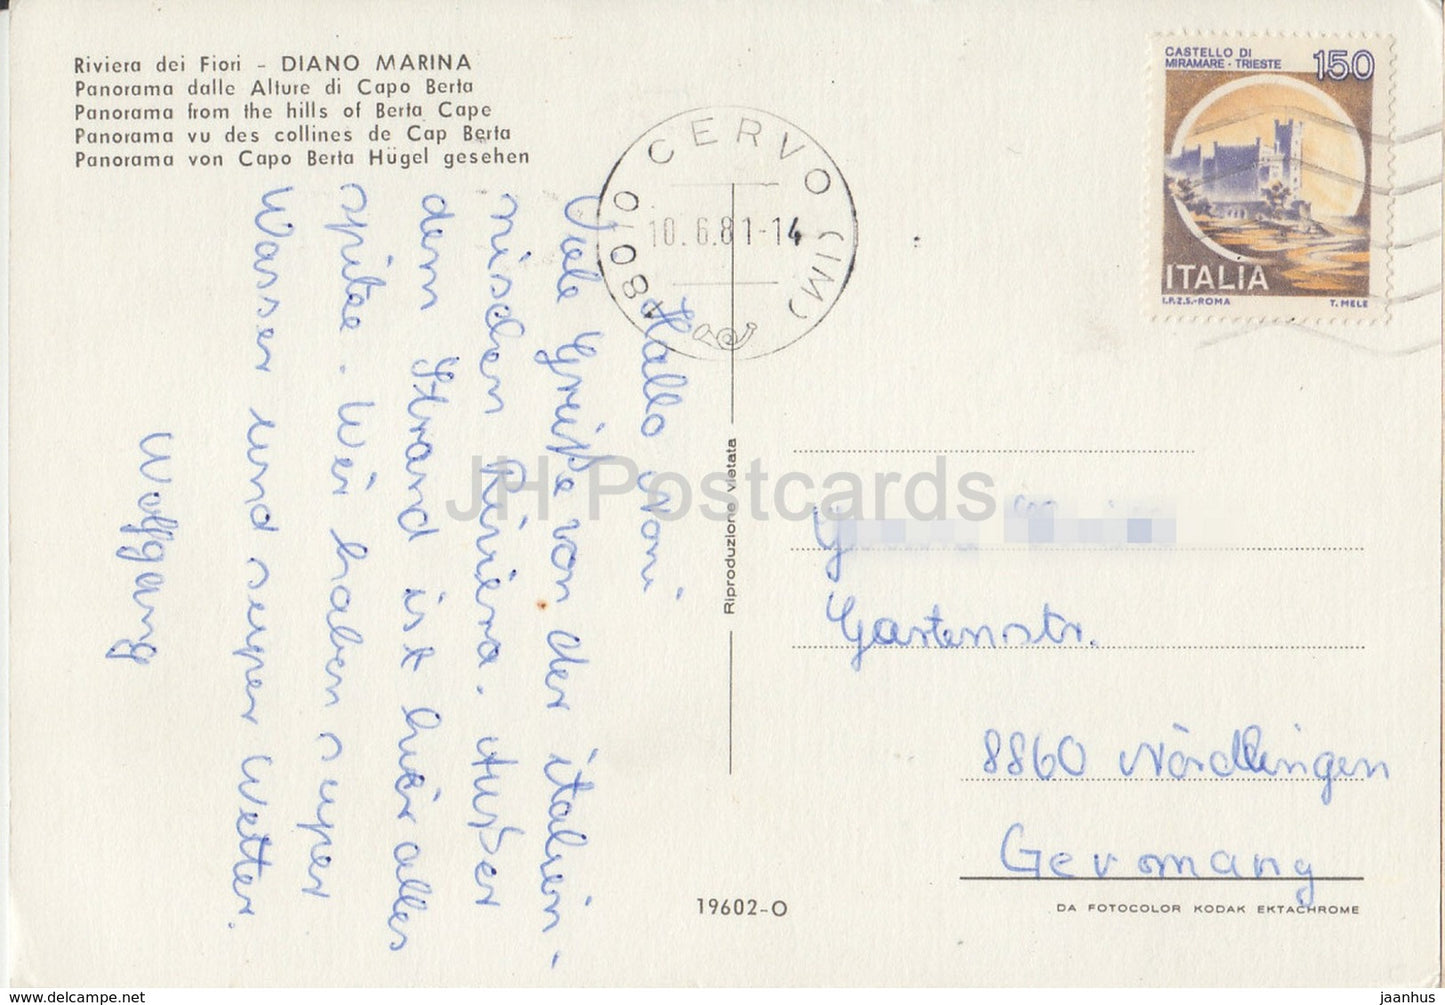 Riviera dei Fiori - DIANO MARINA
Panorama dalle Alture di Capo Berta
Panorama from the hills of Berta Cape
Panorama vu des collines de Cap Berta
Panorama von Capo Berta Hügel gesehen
CASTELLO DI
MIRAMARE - TRIESTE
150
ITALIA
I.P.Z.S.-ROMA
T. MELE
18010 CERVO (IM)
10.6.81-14
Hallo Moni
Viele Grüße von der italien-
nischen Riviera. Außer
dem Strand ist hier alles
spitze. Wir haben super
Wasser und super Wetter.
Wolfgang
Riproduzione vietata
Gartenstr.
8860 Nördlingen
Germany
19602-O
DA FOTOCOLOR KODAK EKTACHROME
JH Postcards
www.delcampe.net
jaanhus